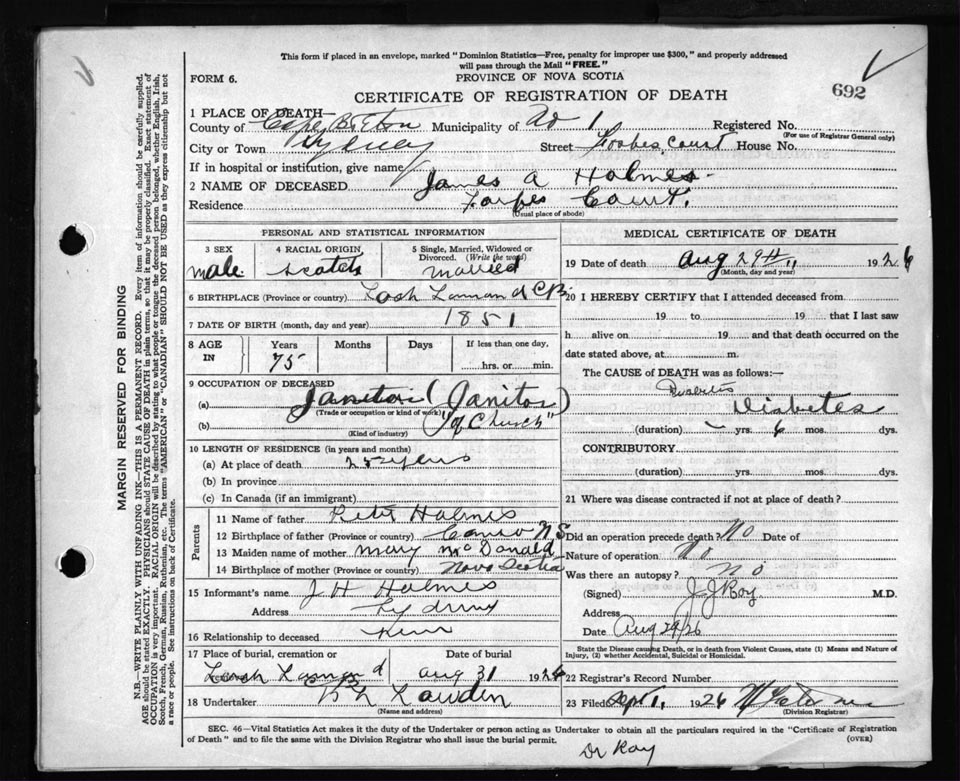 This form if placed in an envelope, marked "Dominion Statistics—Free, penalty for improper use $300," and properly addressed
will pass through the Mail "FREE."
FORM 6.
PROVINCE OF NOVA SCOTIA
692
CERTIFICATE OF REGISTRATION OF DEATH
1 PLACE OF DEATH—
County of Cape Breton Municipality of No 1 Registered No.
(For use of Registrar General only)
City or Town Sydney Street Forbes Court House No.
If in hospital or institution, give name
2 NAME OF DECEASED James A Holmes
Residence Court.
(Usual place of abode)
PERSONAL AND STATISTICAL INFORMATION
3 SEX male
4 RACIAL ORIGIN Scotch
5 Single, Married, Widowed or Divorced. (Write the word) married
6 BIRTHPLACE (Province or country) Loch Lomond C.B.
7 DATE OF BIRTH (month, day and year) 1851
8 AGE IN Years 75 Months Days If less than one day, hrs. or min.
9 OCCUPATION OF DECEASED
(a) Janitor (Janitor
(Trade or occupation or kind of work)
(b) "of Church")
(Kind of industry)
10 LENGTH OF RESIDENCE (in years and months)
(a) At place of death 25 years
(b) In province
(c) In Canada (if an immigrant)
Parents
11 Name of father Peter Holmes
12 Birthplace of father (Province or country) Canso N.S.
13 Maiden name of mother Mary McDonald
14 Birthplace of mother (Province or country) Nova Scotia
15 Informant's name J H Holmes
Address Sydney
16 Relationship to deceased
17 Place of burial, cremation or Loch Lomond
Date of burial Aug 31 1926
18 Undertaker Lowden
(Name and address)
MEDICAL CERTIFICATE OF DEATH
19 Date of death Aug 29th 1926
(Month, day and year)
20 I HEREBY CERTIFY that I attended deceased from
19 to 19 that I last saw
h alive on 19 and that death occurred on the
date stated above, at m.
The CAUSE of DEATH was as follows:—
Diabetes
Diabetes
(duration) yrs. 6 mos. dys.
CONTRIBUTORY
(duration) yrs. mos. dys.
21 Where was disease contracted if not at place of death?
Did an operation precede death? No Date of
Nature of operation No
Was there an autopsy? No
(Signed) J. J. Roy M.D.
Address
Date Aug 29/26
State the Disease causing Death, or in death from Violent Causes, state (1) Means and Nature of
Injury, (2) whether Accidental, Suicidal or Homicidal.
22 Registrar's Record Number
23 Filed Sept 1, 1926
(Division Registrar)
SEC. 46—Vital Statistics Act makes it the duty of the Undertaker or person acting as Undertaker to obtain all the particulars required in the "Certificate of Registration
of Death" and to file the same with the Division Registrar who shall issue the burial permit.
(OVER)
Dr Roy
MARGIN RESERVED FOR BINDING
N.B.—WRITE PLAINLY WITH UNFADING INK—THIS IS A PERMANENT RECORD. Every item of information should be carefully supplied.
AGE should be stated EXACTLY. PHYSICIANS should STATE CAUSE OF DEATH in plain terms, so that it may be properly classified. Exact statement of
OCCUPATION is very important. RACIAL ORIGIN will be described by stating to what people or tongue the deceased person belonged, whether English, Irish,
Scotch, French, German, Russian, Ruthenian, etc. The terms "AMERICAN" or "CANADIAN" SHOULD NOT BE USED as they express citizenship but not
a race or people. See instructions on back of Certificate.